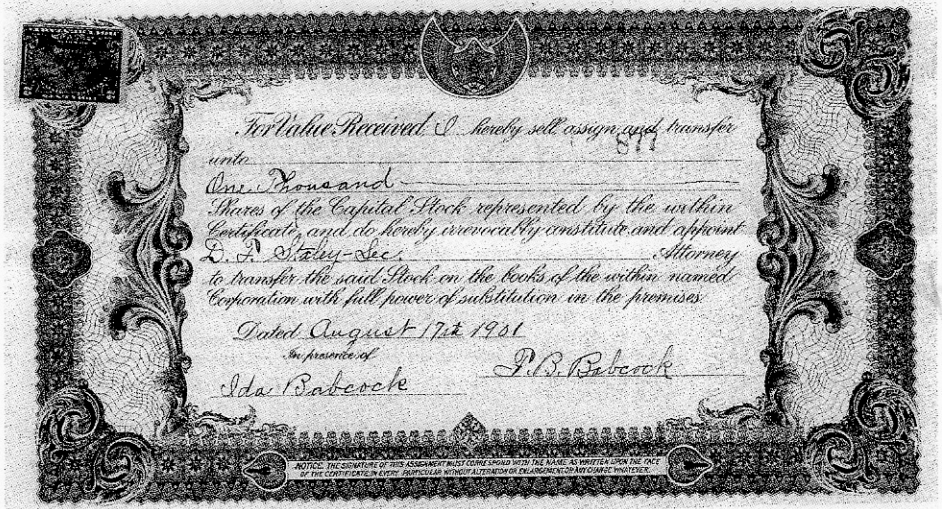 For Value Received I hereby sell, assign and transfer
877
unto
One Thousand
Shares of the Capital Stock represented by the within
Certificate, and do hereby irrevocably constitute and appoint
Staley-Sec. Attorney
to transfer the said Stock on the books of the within named
Corporation with full power of substitution in the premises.
Dated August 17th 1901
In presence of
Ida Babcock
P.B. Babcock
NOTICE. THE SIGNATURE OF THIS ASSIGNMENT MUST CORRESPOND WITH THE NAME AS WRITTEN UPON THE FACE
OF THE CERTIFICATE IN EVERY PARTICULAR WITHOUT ALTERATION OR ENLARGEMENT, OR ANY CHANGE WHATEVER.